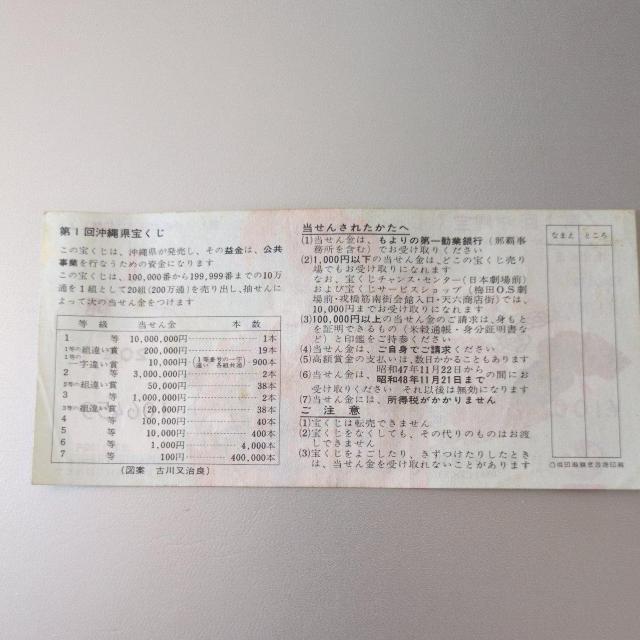 第1回沖縄県宝くじ
この宝くじは、沖縄県が発売し、その益金は、公共
事業を行なうための資金になります
この宝くじは、100,000番から199,999番までの10万
通を1組として20組(200万通)を売り出し、抽せんに
よって次の当せん金をつけます
等 級 当せん金 本 数
1 等 10,000,000円 1本
1等の組違い賞 200,000円 19本
1等の一字違い賞 10,000円 (1等番号の一字違い 各組共通) 900本
2 等 3,000,000円 2本
2等の組違い賞 50,000円 38本
3 等 1,000,000円 2本
3等の組違い賞 20,000円 38本
4 等 100,000円 40本
5 等 10,000円 400本
6 等 1,000円 4,000本
7 等 100円 400,000本
(図案 古川又治良)
当せんされたかたへ
(1)当せん金は、もよりの第一勧業銀行(那覇事
務所を含む)でお受け取りください
(2)1,000円以下の当せん金は、どこの宝くじ売り
場でもお受け取りになれます
なお、宝くじチャンス・センター(日本劇場前)
および宝くじサービスショップ(梅田O.S劇
場前・戎橋筋南街会館入口・天六商店街)では、
10,000円までお受け取りになれます
(3)100,000円以上の当せん金のご請求は、身もと
を証明できるもの(米穀通帳・身分証明書など)
と印鑑をご持参ください
(4)当せん金は、ご自身でご請求ください
(5)高額賞金の支払いは、数日かかることもあります
(6)当せん金は、昭和47年11月22日からの間にお
昭和48年11月21日まで
受け取りください それ以後は無効になります
(7)当せん金には、所得税がかかりません
ご 注 意
(1)宝くじは転売できません
(2)宝くじをなくしても、その代りのものはお渡
しできません
(3)宝くじをよごしたり、きずつけたりしたとき
は、当せん金を受け取れないことがあります
なまえ
ところ